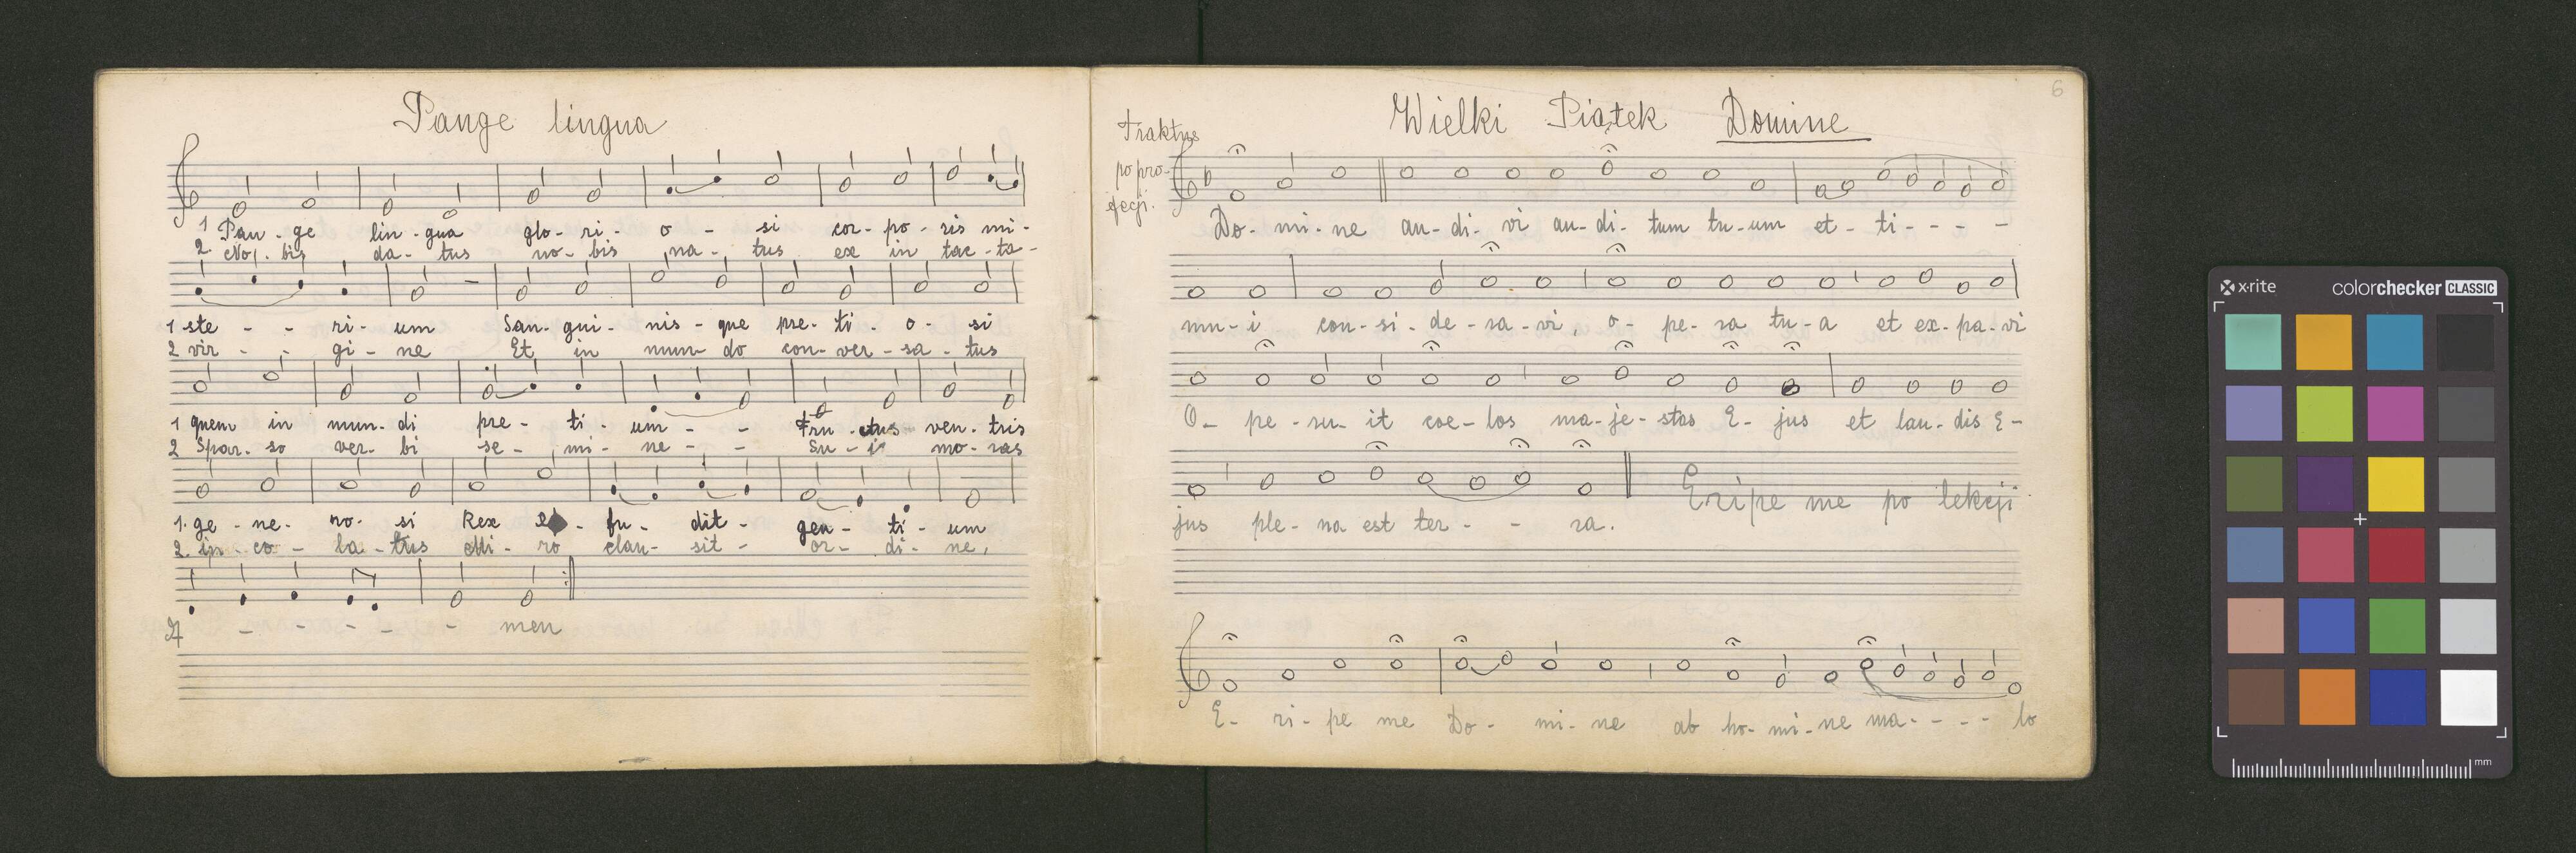 Pange lingua
1 Pan - ge lin - gua glo - ri - o - si cor - po - ris mi -
2 No - bis da - tus no - bis na - tus ex in tac - ta -
1 ste - - ri - um San - gui - nis - que pre - ti - o - si
2 vir - - gi - ne Et in mun - do con - ver - sa - tus
1 quem in mun - di pre - ti - um - - Fru - ctus ven - tris
2 Spar - so ver - bi se - mi - ne - - Su - i mo - ras
1. ge - ne - ro - si Rex - fu - dit - gen - ti - um
2. in - co - la - tus Mi - ro clau - sit - or - di - ne,
A - - - - - men
6
Wielki Piątek Domine
Traktus
po pro-
fecji.
Do - mi - ne au - di - vi au - di - tum tu - um et - ti - - - -
mu - i con - si - de - ra - vi, o - pe - ra tu - a et ex - pa - vi
O - pe - ru - it coe - los ma - je - stas E - jus et lau - dis E -
jus ple - na est ter - - ra.
Eripe me po lekcji
E - ri - pe me Do - mi - ne ab ho - mi - ne ma - - - - lo
x-rite
colorchecker CLASSIC
mm